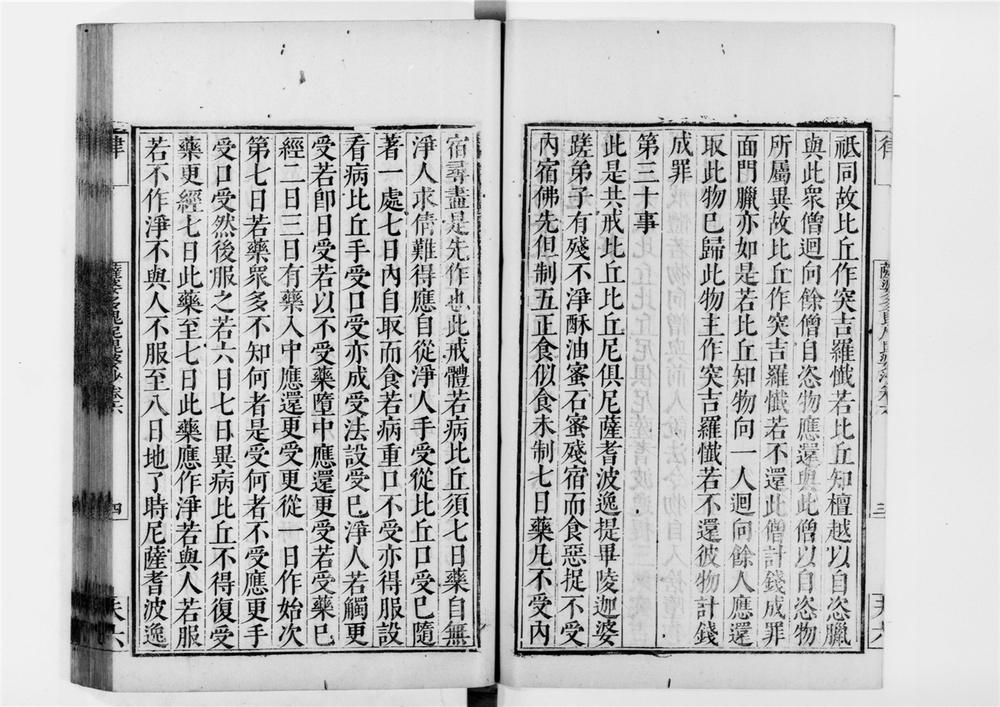 祇同故比丘作突吉羅懺若比丘知檀越以自恣臘
與此衆僧迴向餘僧自恣物應還與此僧以自恣物
所屬異故比丘作突吉羅懺若不還此僧計錢成罪
面門臘亦如是若比丘知物向一人迴向餘人應還
取此物已歸此物主作突吉羅懺若不還彼物計錢
成罪
第三十事
此是共戒比丘比丘尼俱尼薩耆波逸提畢陵迦婆
蹉弟子有殘不淨酥油蜜石蜜殘宿而食惡捉不受
內宿佛先但制五正食似食未制七日藥凡不受內
宿尋盡是先作也此戒體若病比丘須七日藥自無
淨人求倩難得應自從淨人手受從比丘口受已隨
著一處七日內自取而食若病重口不受亦得服設
看病比丘手受口受亦成受法設受已淨人若觸更
受若卽日受若以不受藥墮中應還更受若受藥已
經二日三日有藥入中應還更受更從一日作始次
第七日若藥衆多不知何者是受何者不受應更手
受口受然後服之若六日七日異病比丘不得復受
藥更經七日此藥至七日此藥應作淨若與人若服
若不作淨不與人不服至八日地了時尼薩耆波逸
律
薩婆多毘尼毘婆沙卷六
三
天六
律
薩婆多毘尼毘婆沙卷六
四
天六